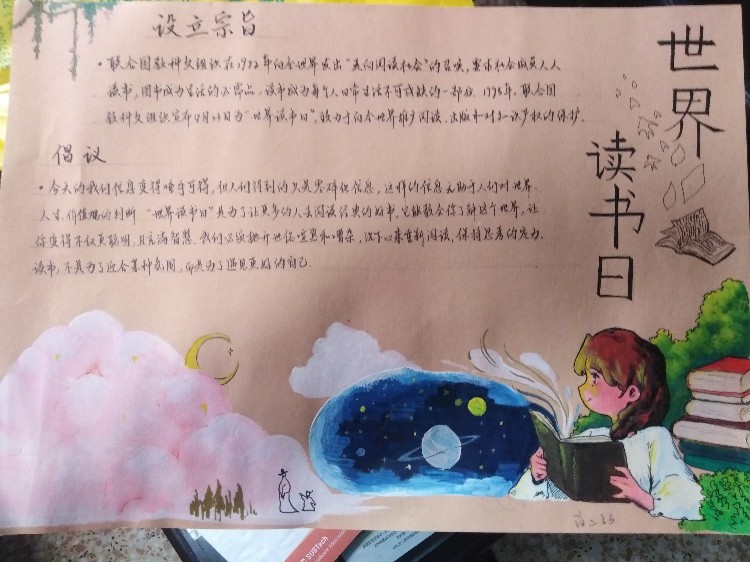 世界
读书日
设立宗旨
·联合国教科文组织在1972年向全世界发出"走向阅读社会"的召唤,要求社会成员人人
读书,图书成为生活的必需品,读书成为每个人日常生活不可或缺的一部分。1995年,联合国
教科文组织宣布4月23日为"世界读书日",致力于向全世界推广阅读、出版和对知识产权的保护。
倡议
·今天的我们信息变得唾手可得,但人们得到的只是零碎低信息,这样的信息无助于人们对世界、
人生、价值观的判断。"世界读书日"是为了让更多的人去阅读经典的好书,它能教会你了解这个世界,让
你变得不仅更聪明,且充满智慧。我们必须抛开世俗喧嚣和嘈杂,沉下心来重新阅读,保持思考的定力
读书,不是为了迎合某种氛围,而是为了遇见更好的自己.
高二15
SUSTech